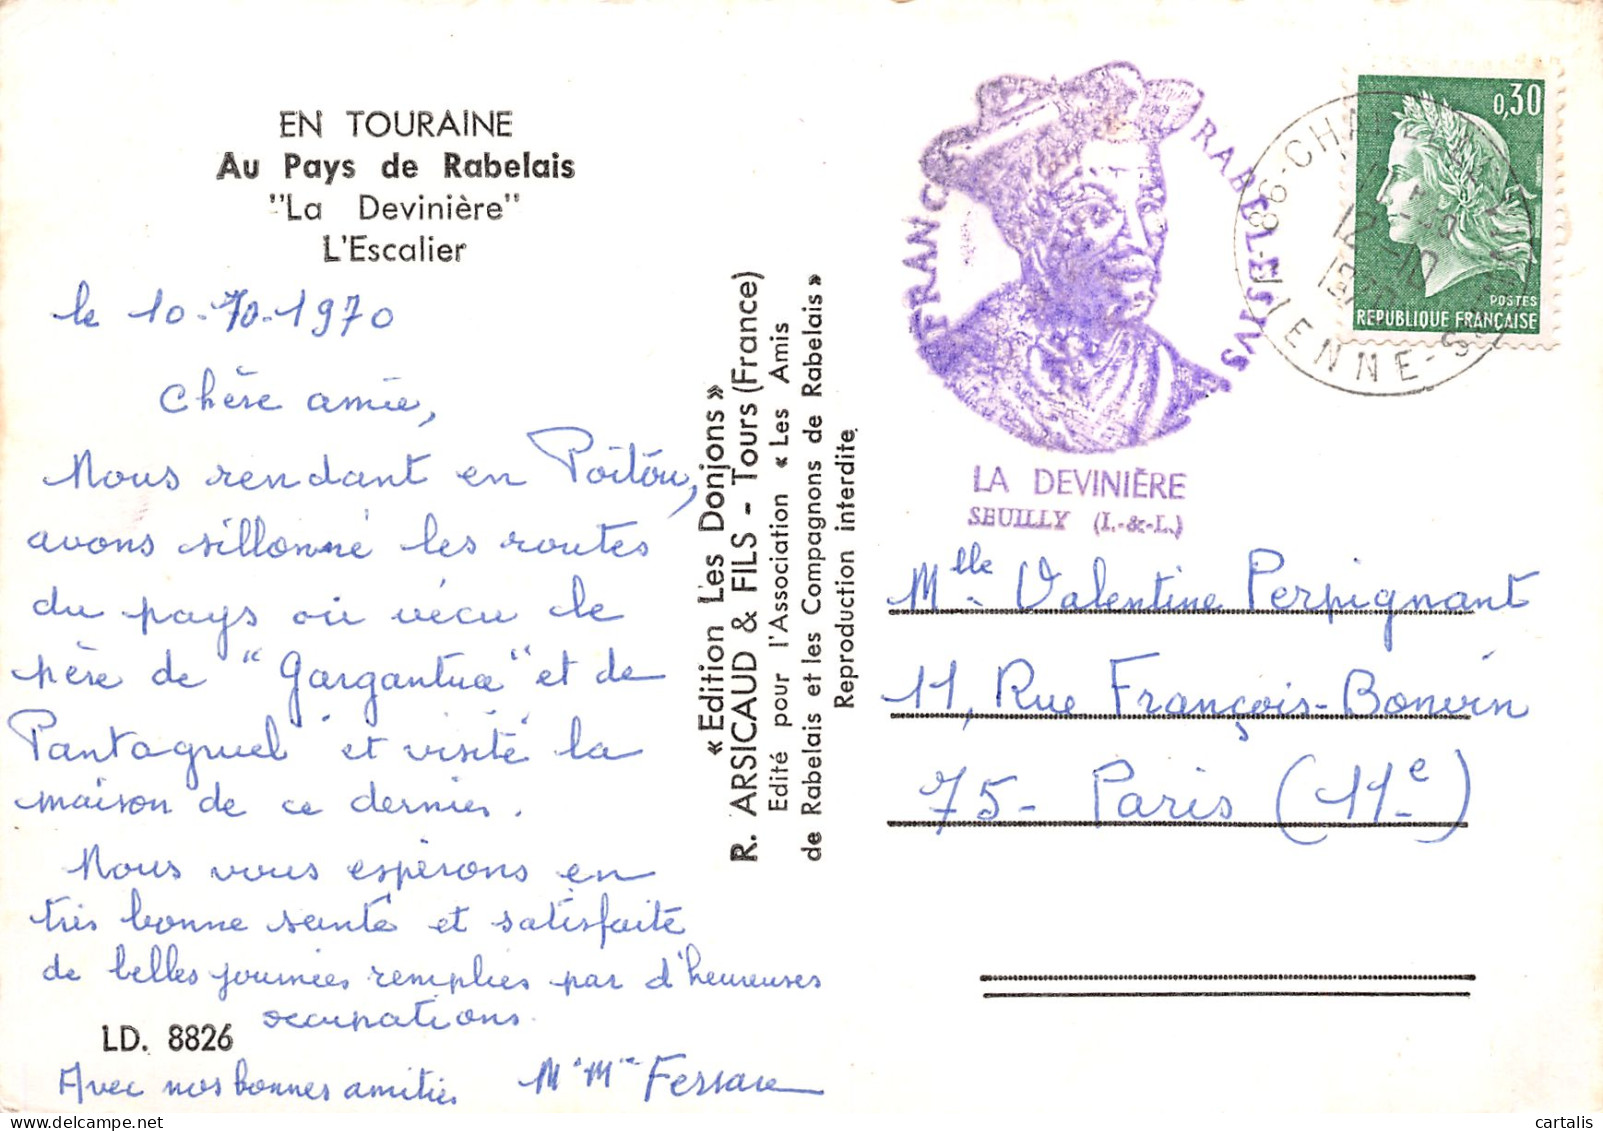 EN TOURAINE
Au Pays de Rabelais
"La Devinière"
L'Escalier
le 10-10-1970
Chère amie,
Nous rendant en Poitou,
avons sillonné les routes
du pays où vécu le
père de "Gargantua" et de
Pantagruel et visité la
maison de ce dernier.
Nous vous espérons en
très bonne santé et satisfaite
de belles journées remplies par d'heureuses
occupations.
LD. 8826
Avec nos bonnes amitiés
«Edition Les Donjons»
R. ARSICAUD & FILS - Tours (France)
Edité pour l'Association «Les Amis
de Rabelais et les Compagnons de Rabelais»
Reproduction interdite.
RABELESVS
LA DEVINIÈRE
SEUILLY (I.-&-L.)
0,30
POSTES
REPUBLIQUE FRANÇAISE
86-
VIENNE-
12-10
1970
Mlle Valentine Perpignant
11, Rue François-Bonvin
75- Paris (11e)
cartalis
delcampe.net